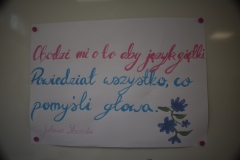 Chodzi mi o to aby język giętki
Powiedział wszystko, co
pomyśli głowa.